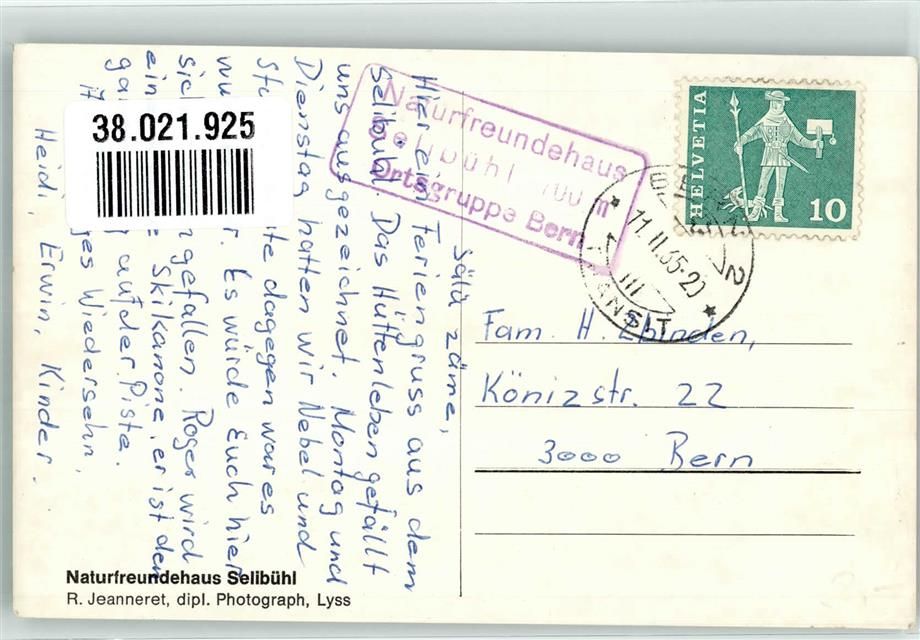 Sälü zäme,
Hier ein Feriengruss aus dem
Selibühl. Das Hüttenleben gefällt
uns ausgezeichnet. Montag und
Dienstag hatten wir Nebel und
te dagegen war es
r. Es würde Euch hier
gefallen. Roger wird
ein Skikanone, er ist den
auf der Piste.
es Wiedersehn,
Heidi, Erwin, Kinder.
38.021.925
Naturfreundehaus
Ortsgruppe Bern
HELVETIA
10
TRANSIT
Fam. H. Zbinden,
Könizstr. 22
3000 Bern
Naturfreundehaus Selibühl
R. Jeanneret, dipl. Photograph, Lyss